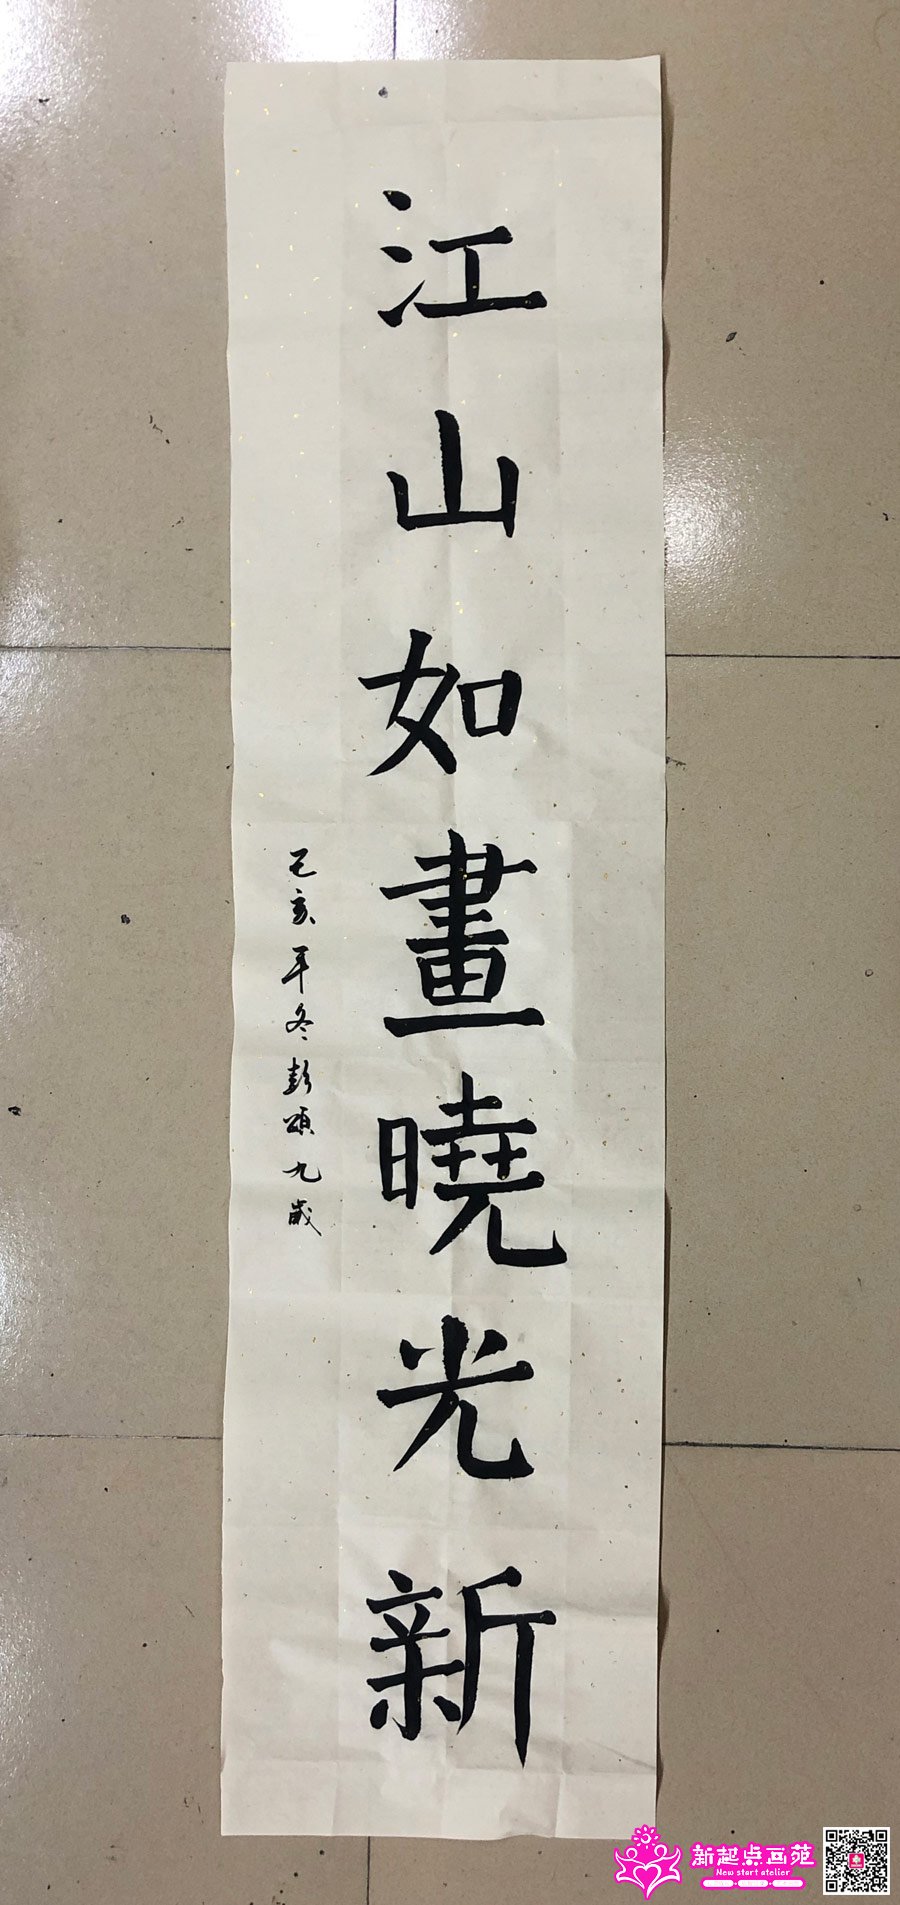 江山如畫曉光新
己亥年冬彭頌九歲
新起点画苑
New start atelier